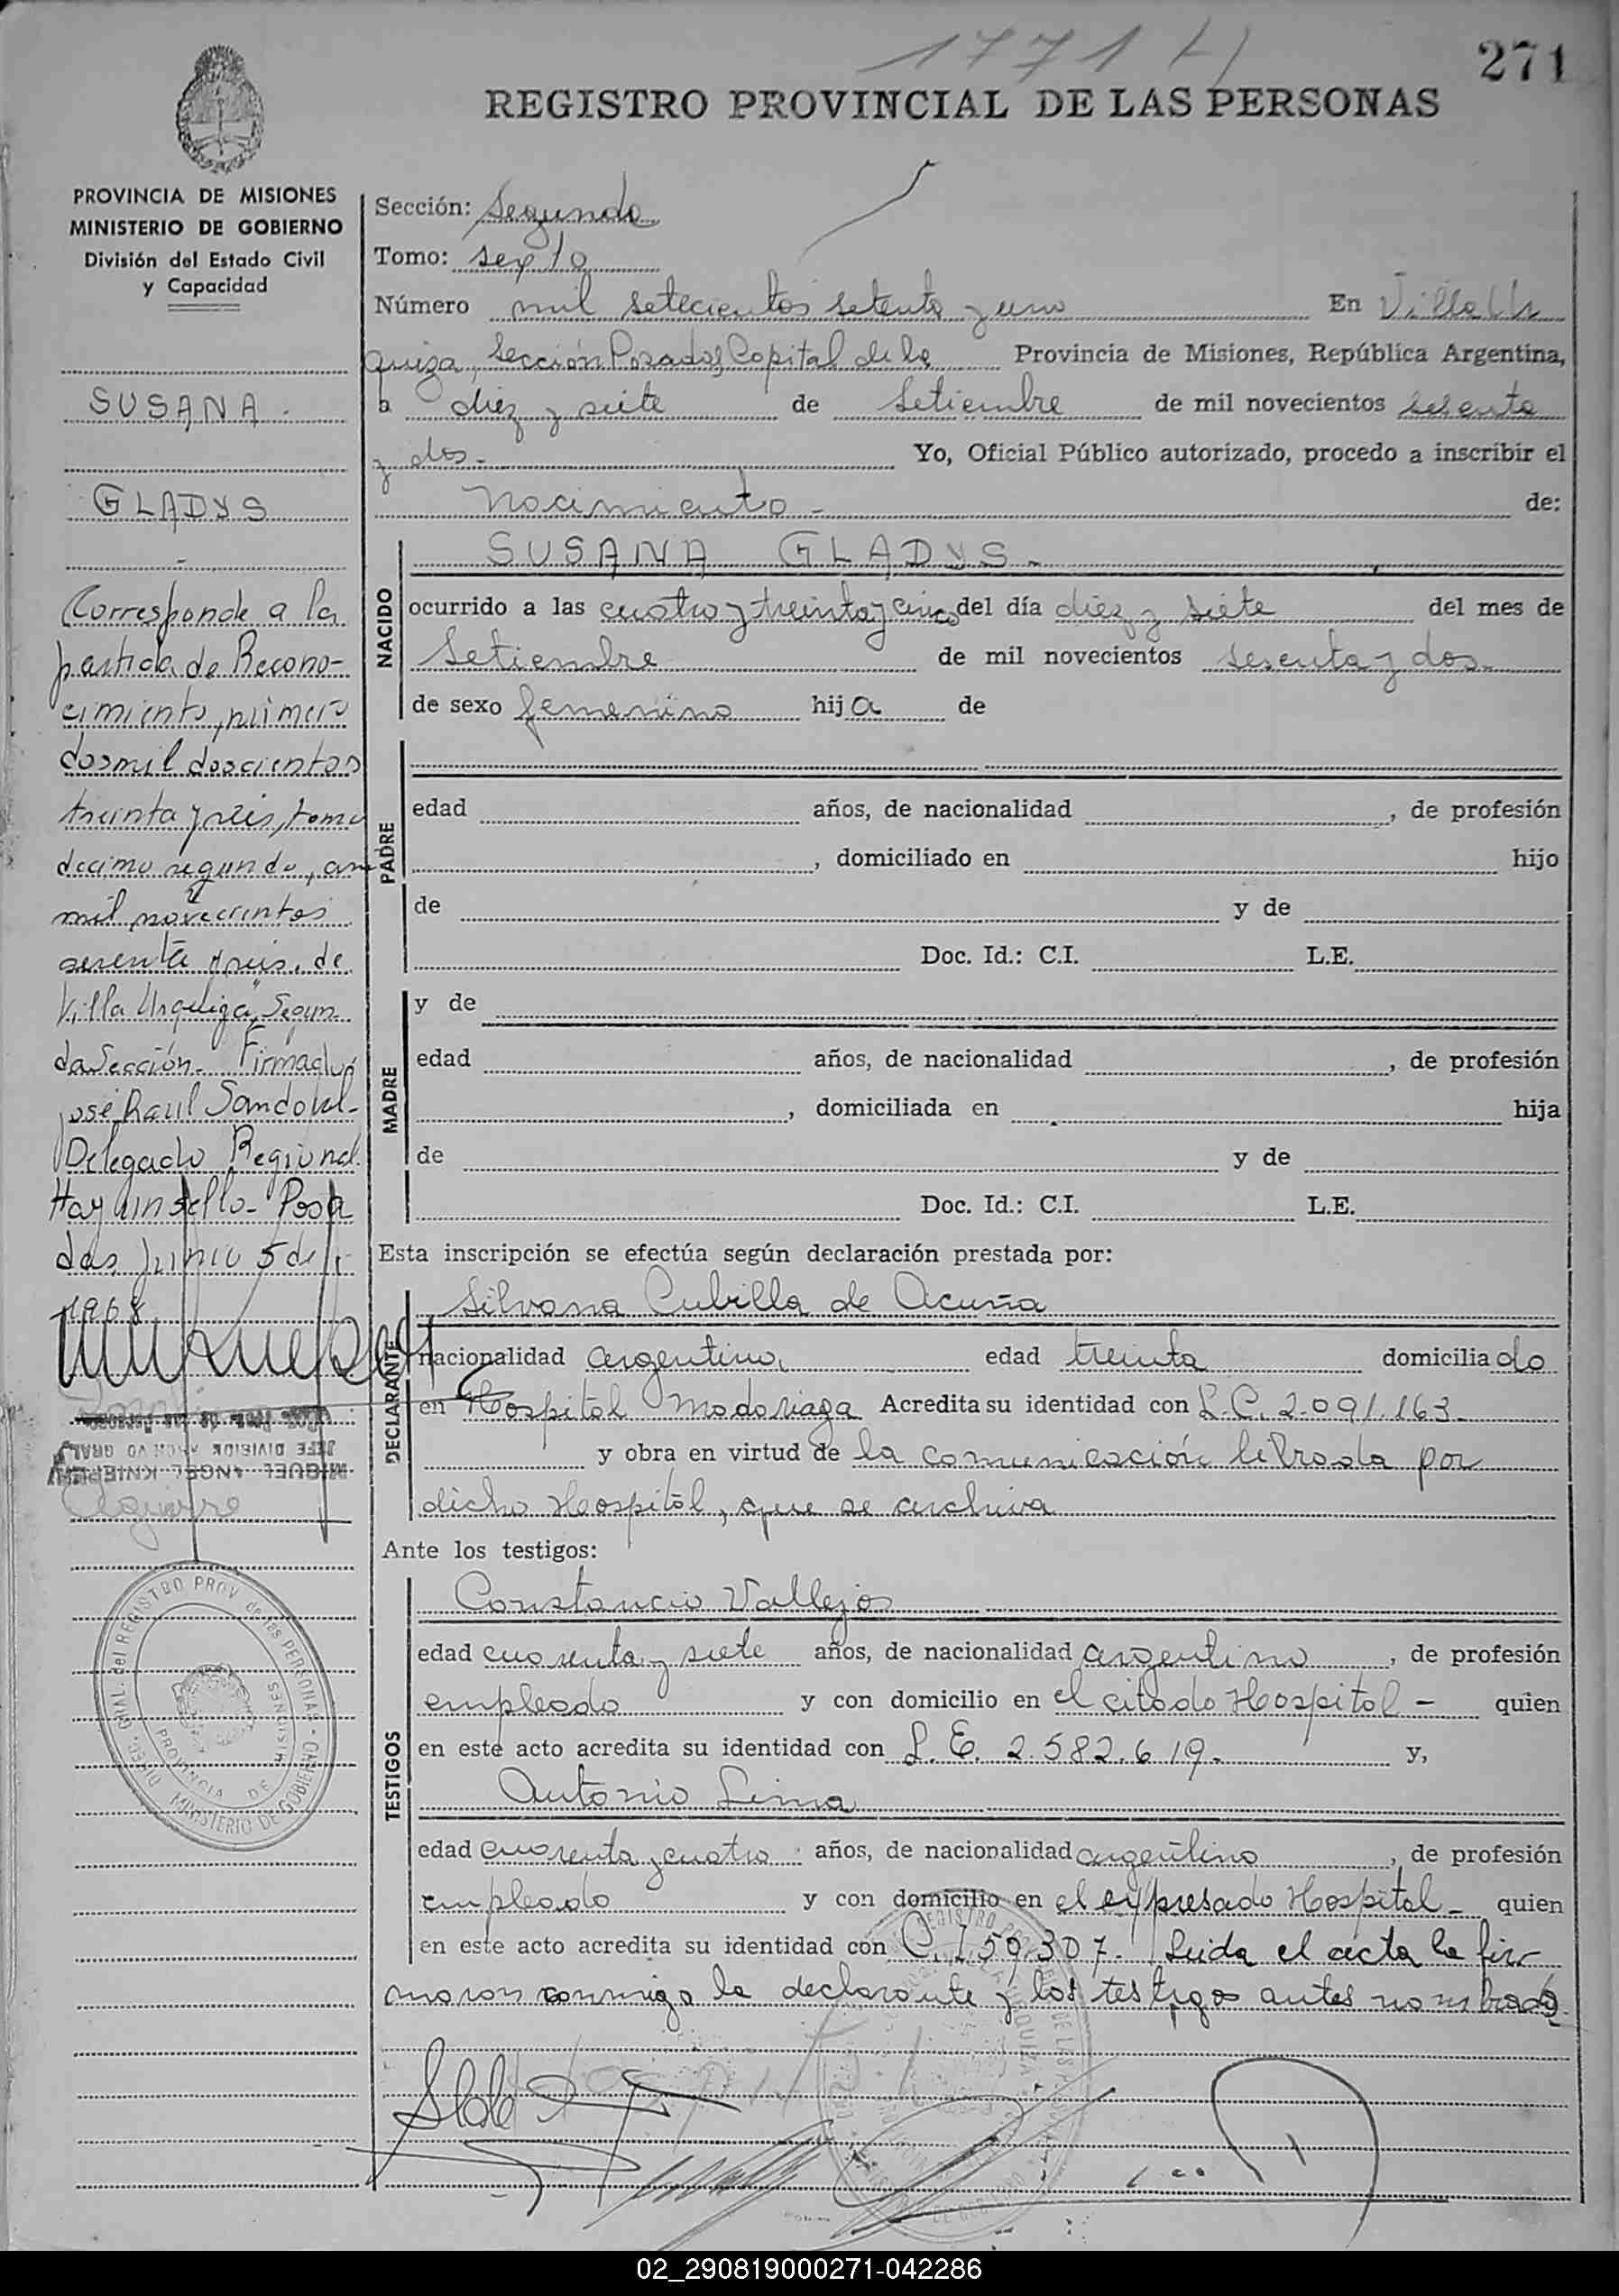 1771
271
REGISTRO PROVINCIAL DE LAS PERSONAS
PROVINCIA DE MISIONES
MINISTERIO DE GOBIERNO
División del Estado Civil
y Capacidad
SUSANA
GLADYS
Corresponde a la
partida de Recono-
cimiento, número
dosmil doscientos
treinta y seis, tomo
decimo segundo, año
mil novecientos
sesenta y seis, de
Villa Urquiza, Segun-
da Sección. Firmado,
José Raul Sandoval-
Delegado Regional.
Hay un sello- Posa
das, Junio 5 de
1968
JEFE DIVISION ARCHIVO GRAL
MIGUEL ANGEL
Aguirre
DIREC. GRAL. del REGISTRO PROV. de las PERSONAS - MINISTERIO DE GOBIERNO
PROVINCIA DE MISIONES
Sección: Segunda
Tomo: sexto
Número mil setecientos setenta y uno En Villa Ur
quiza, Sección Posadas, Capital de la Provincia de Misiones, República Argentina,
a diez y siete de Setiembre de mil novecientos sesenta
y dos.- Yo, Oficial Público autorizado, procedo a inscribir el
Nacimiento - de:
NACIDO
SUSANA GLADYS.-
ocurrido a las cuatro y treinta y cinco del día diez y siete del mes de
Setiembre de mil novecientos sesenta y dos.-
de sexo femenino hija de
PADRE
edad años, de nacionalidad , de profesión
, domiciliado en hijo
de y de
Doc. Id.: C.I. L.E.
MADRE
y de
edad años, de nacionalidad , de profesión
, domiciliada en hija
de y de
Doc. Id.: C.I. L.E.
Esta inscripción se efectúa según declaración prestada por:
DECLARANTE
Silvana Cubilla de Acuña
nacionalidad argentina, edad treinta domiciliado
en Hospital Madariaga Acredita su identidad con L.C. 2.091.163.-
y obra en virtud de la comunicación librada por
dicho Hospital, que se archiva
Ante los testigos:
TESTIGOS
Constancio Vallejos
edad cuarenta y siete años, de nacionalidad argentino , de profesión
empleado y con domicilio en el citado Hospital - quien
en este acto acredita su identidad con L.E. 2.582.619.- y,
Antonio Lima
edad cuarenta y cuatro años, de nacionalidad argentino , de profesión
empleado y con domicilio en el expresado Hospital - quien
en este acto acredita su identidad con C.I. 59.307.- Leida el acta la fir
maron conmigo la declarante y los testigos antes nombrados.
02_290819000271-042286